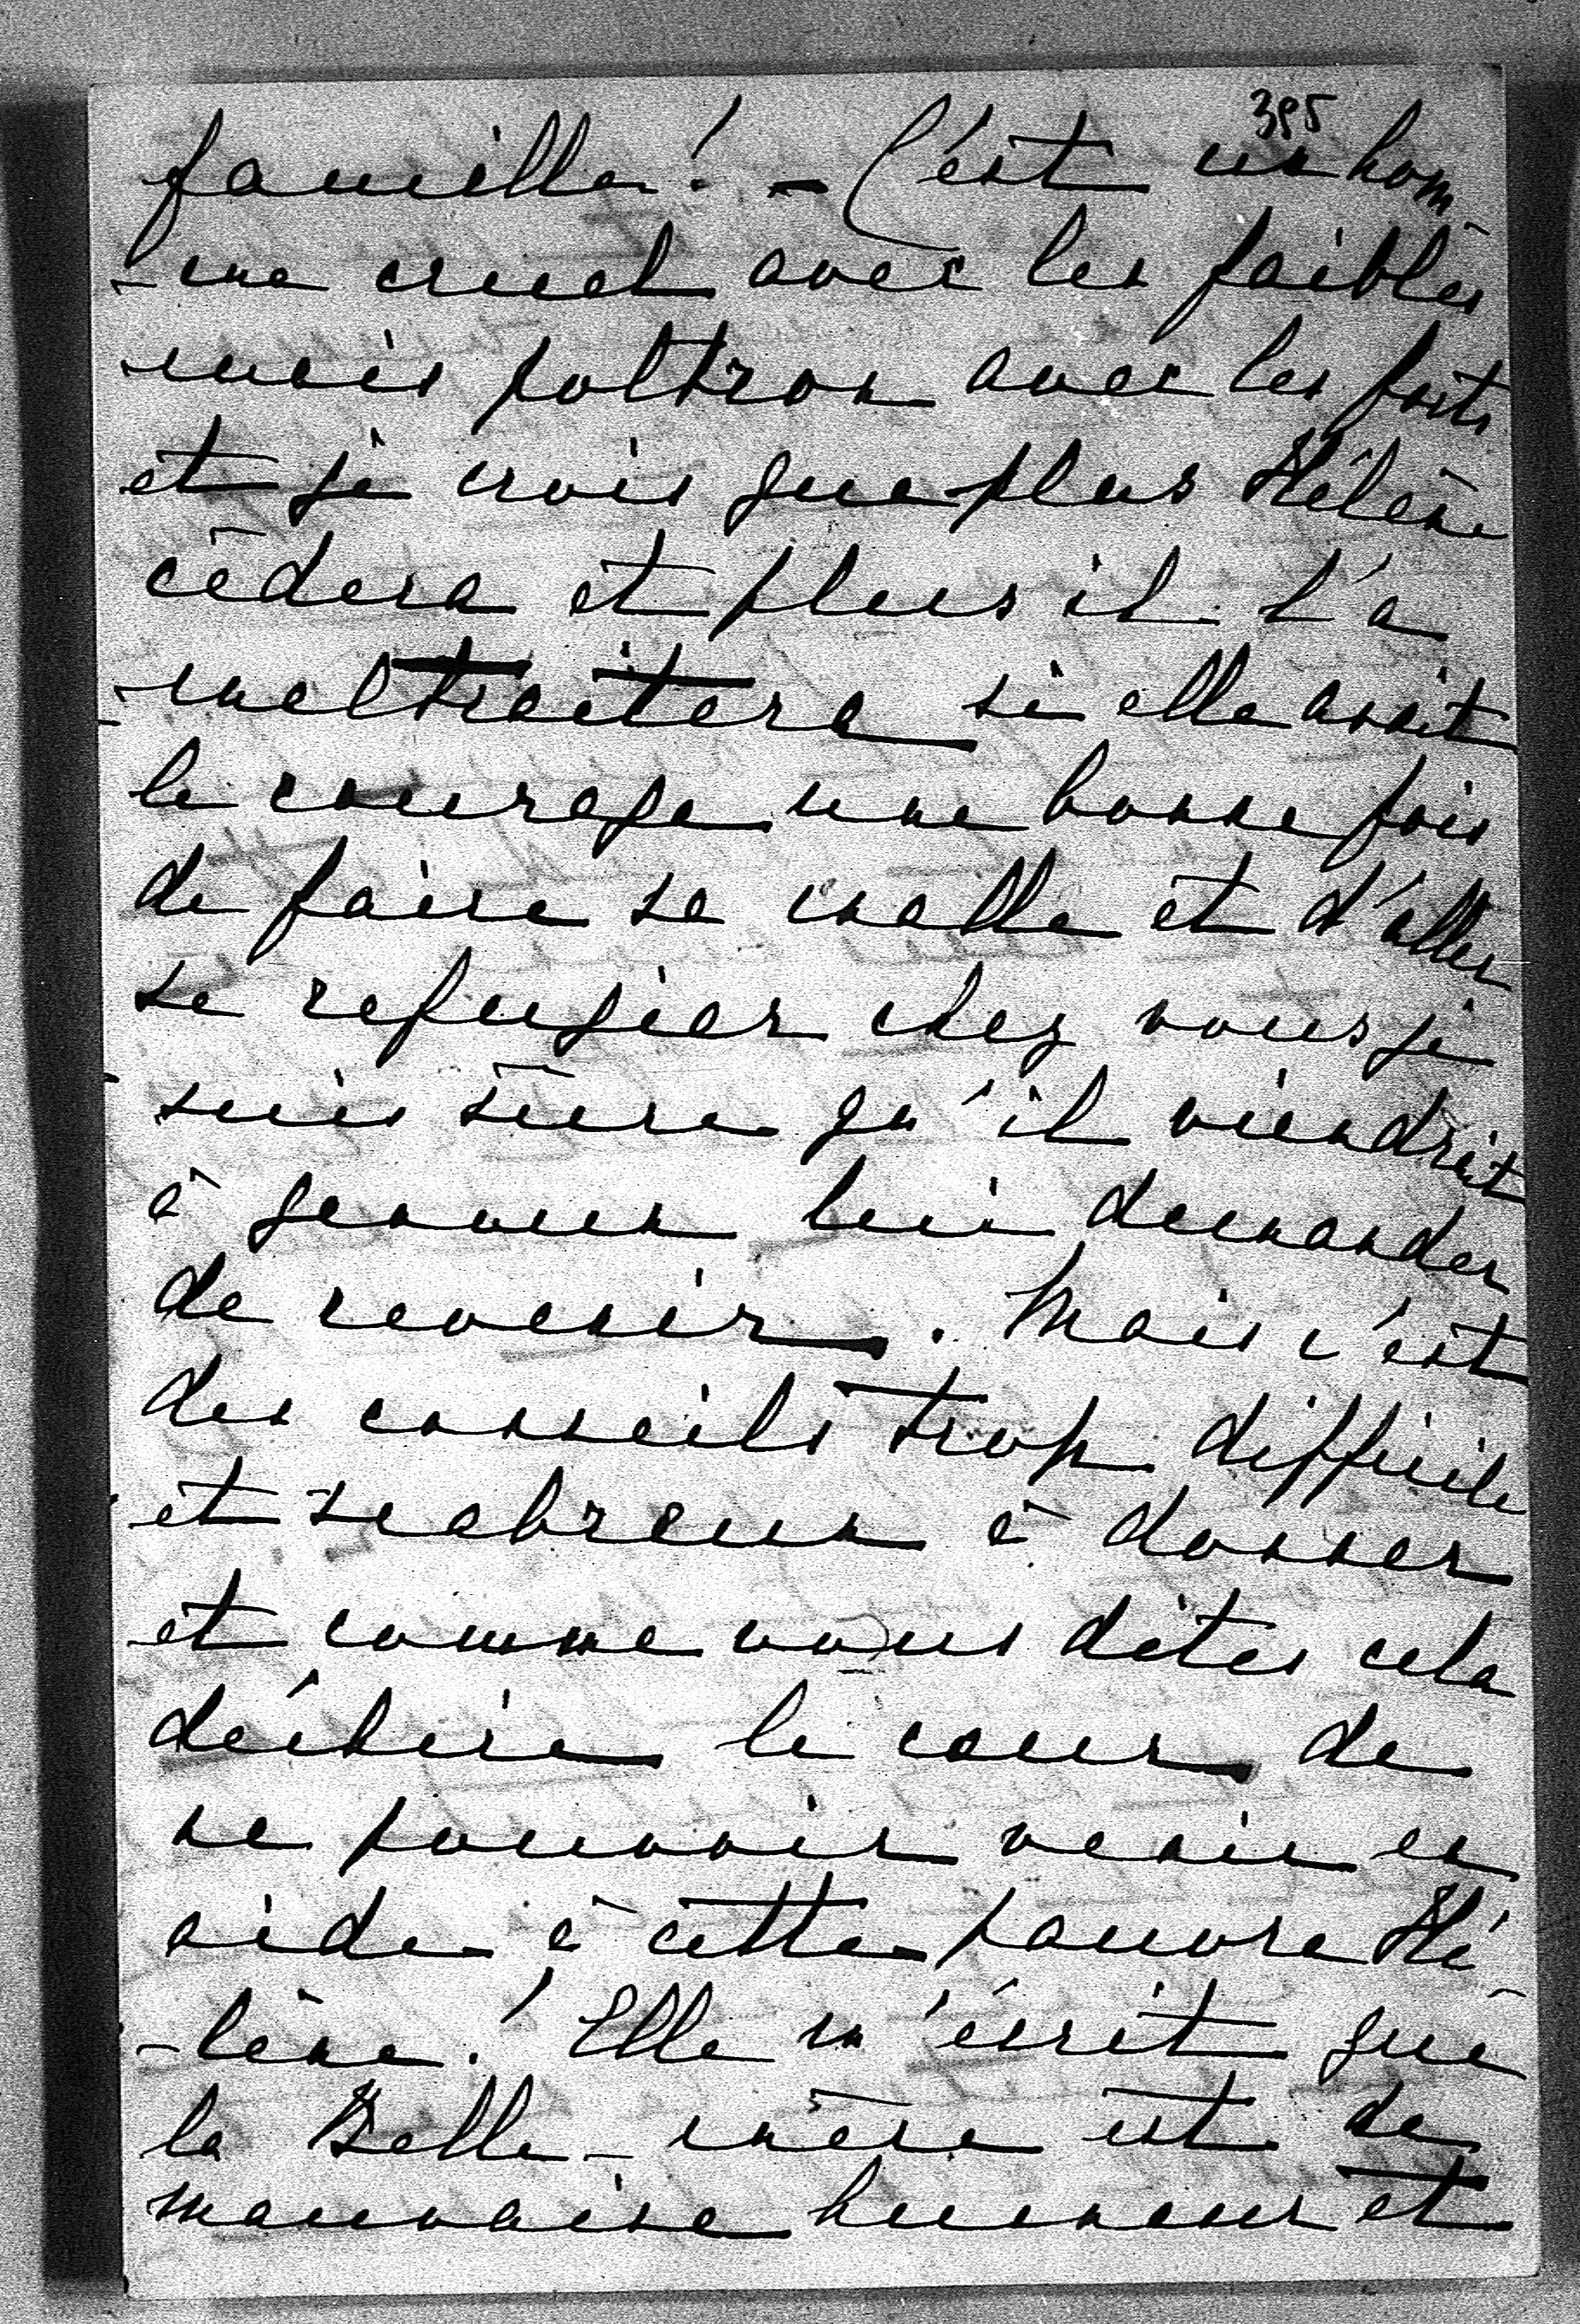 395
famille! – C'est un hom
-me cruel avec les faibles
mais poltron avec les forts
et je crois que plus Hélène
cèdera et plus il la
-maltraitera si elle avait
le courage une bonne fois
de faire sa malle et d'aller
se refugier chez vous je
suis sûre qu'il viendrait
à genoux lui demander
de revenir. Mais c'est
des conseils trop difficile
et scabreux à donner
et comme vous dites cela
déchire le coeur de
ne pouvoir venir en
aide à cette pauvre Hé
-lène! Elle m'écrit que
la Belle-mère est de
mauvaise humeur et